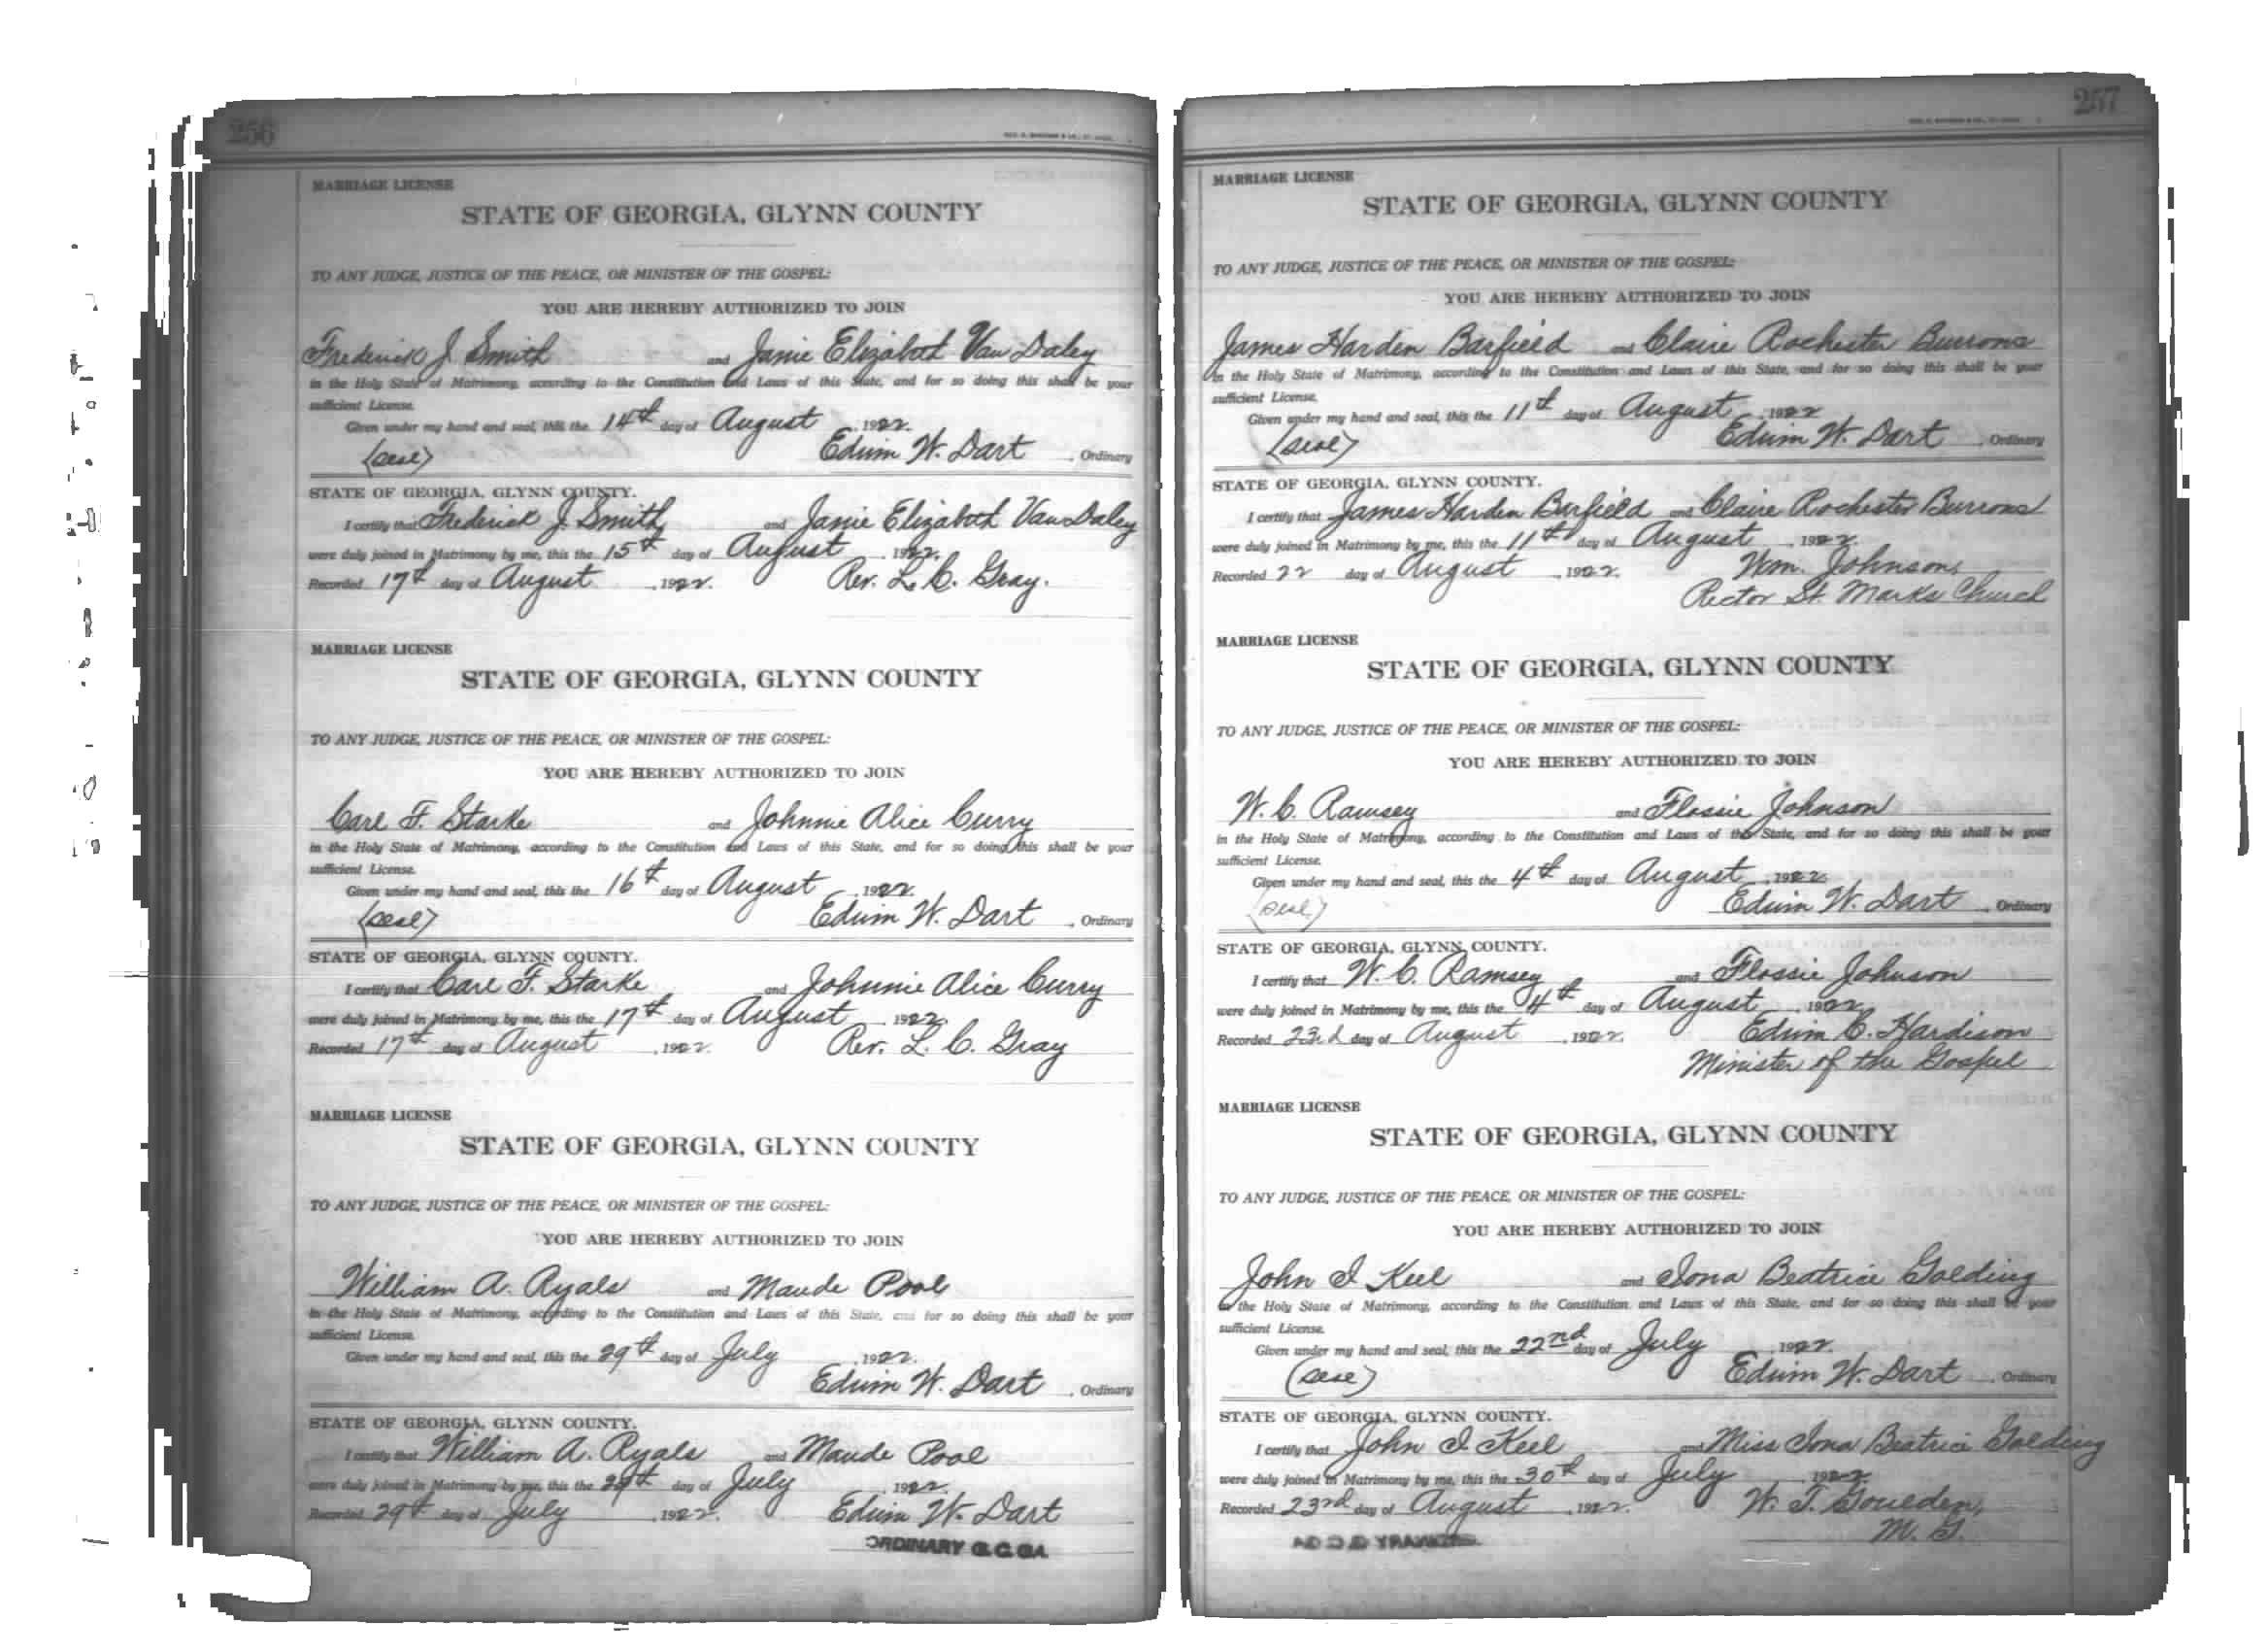 256
MARRIAGE LICENSE
STATE OF GEORGIA, GLYNN COUNTY
TO ANY JUDGE, JUSTICE OF THE PEACE, OR MINISTER OF THE GOSPEL:
YOU ARE HEREBY AUTHORIZED TO JOIN
Frederick J. Smith and Janie Elizabeth Van Daley
in the Holy State of Matrimony, according to the Constitution and Laws of this State, and for so doing this shall be your
sufficient License.
Given under my hand and seal, this the 14th day of August, 1922.
(seal) Edwin W. Dart, Ordinary
STATE OF GEORGIA, GLYNN COUNTY.
I certify that Frederick J. Smith and Janie Elizabeth Van Daley
were duly joined in Matrimony by me, this the 15th day of August, 1922.
Recorded 17th day of August, 1922. Rev. L. C. Gray.
MARRIAGE LICENSE
STATE OF GEORGIA, GLYNN COUNTY
TO ANY JUDGE, JUSTICE OF THE PEACE, OR MINISTER OF THE GOSPEL:
YOU ARE HEREBY AUTHORIZED TO JOIN
Carl F. Starke and Johnnie Alice Curry
in the Holy State of Matrimony, according to the Constitution and Laws of this State, and for so doing this shall be your
sufficient License.
Given under my hand and seal, this the 16th day of August, 1922.
(seal) Edwin W. Dart, Ordinary
STATE OF GEORGIA, GLYNN COUNTY.
I certify that Carl F. Starke and Johnnie Alice Curry
were duly joined in Matrimony by me, this the 17th day of August, 1922.
Recorded 17th day of August, 1922. Rev. L. C. Gray
MARRIAGE LICENSE
STATE OF GEORGIA, GLYNN COUNTY
TO ANY JUDGE, JUSTICE OF THE PEACE, OR MINISTER OF THE GOSPEL:
YOU ARE HEREBY AUTHORIZED TO JOIN
William A. Ryals and Maude Pool
in the Holy State of Matrimony, according to the Constitution and Laws of this State, and for so doing this shall be your
sufficient License.
Given under my hand and seal, this the 29th day of July, 1922.
Edwin W. Dart, Ordinary
STATE OF GEORGIA, GLYNN COUNTY.
I certify that William A. Ryals and Maude Pool
were duly joined in Matrimony by me, this the 29th day of July, 1922.
Recorded 29th day of July, 1922. Edwin W. Dart
ORDINARY G. C. GA.
257
MARRIAGE LICENSE
STATE OF GEORGIA, GLYNN COUNTY
TO ANY JUDGE, JUSTICE OF THE PEACE, OR MINISTER OF THE GOSPEL:
YOU ARE HEREBY AUTHORIZED TO JOIN
James Harden Barfield and Claire Rochester Burrons
in the Holy State of Matrimony, according to the Constitution and Laws of this State, and for so doing this shall be your
sufficient License.
Given under my hand and seal, this the 11th day of August, 1922
(seal) Edwin W. Dart, Ordinary
STATE OF GEORGIA, GLYNN COUNTY.
I certify that James Harden Barfield and Claire Rochester Burrons
were duly joined in Matrimony by me, this the 11th day of August, 1922.
Recorded 22 day of August, 1922. Wm. Johnson,
Rector St. Marks Church
MARRIAGE LICENSE
STATE OF GEORGIA, GLYNN COUNTY
TO ANY JUDGE, JUSTICE OF THE PEACE, OR MINISTER OF THE GOSPEL:
YOU ARE HEREBY AUTHORIZED TO JOIN
W. C. Ramsey and Flossie Johnson
in the Holy State of Matrimony, according to the Constitution and Laws of this State, and for so doing this shall be your
sufficient License.
Given under my hand and seal, this the 4th day of August, 1922.
(seal) Edwin W. Dart, Ordinary
STATE OF GEORGIA, GLYNN COUNTY.
I certify that W. C. Ramsey and Flossie Johnson
were duly joined in Matrimony by me, this the 4th day of August, 1922.
Recorded 23rd day of August, 1922. Edwin C. Hardison
Minister of the Gospel
MARRIAGE LICENSE
STATE OF GEORGIA, GLYNN COUNTY
TO ANY JUDGE, JUSTICE OF THE PEACE, OR MINISTER OF THE GOSPEL:
YOU ARE HEREBY AUTHORIZED TO JOIN
John I Keel and Iona Beatrice Golding
in the Holy State of Matrimony, according to the Constitution and Laws of this State, and for so doing this shall be your
sufficient License.
Given under my hand and seal, this the 22nd day of July, 1922.
(seal) Edwin W. Dart, Ordinary
STATE OF GEORGIA, GLYNN COUNTY.
I certify that John I Keel and Miss Iona Beatrice Golding
were duly joined in Matrimony by me, this the 30th day of July, 1922.
Recorded 23rd day of August, 1922. W. T. Goulden,
M. G.